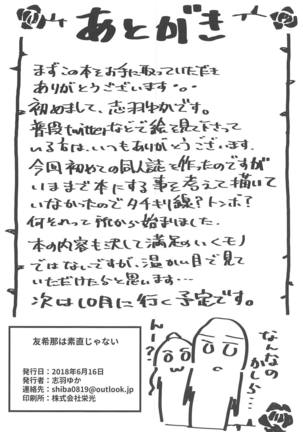 あとがき
まずこの本をお手に取っていただき
ありがとうございます。
初めまして、志羽ゆかです。
普段twitterなどで絵を見て下さって
いる方は、いつもありがとうございます。
今回初めての同人誌を作ったのですが
いままで本にする事を考えて描いて
いなかったのでタチキリ線?トンボ?
何それって所から始まりました。
本の内容も決して満足のいくモノ
ではないですが、温かい目で見て
いただけたらと思います…
次は10月に行く予定です。
友希那は素直じゃない
発行日:2018年6月16日
発行者:志羽ゆか
連絡先:shiba0819@outlook.jp
印刷所:株式会社栄光
なんなの
かしら…
んー?